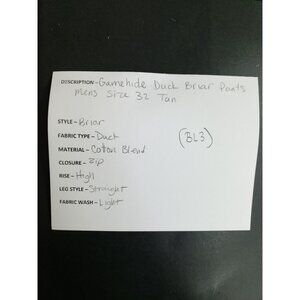 DESCRIPTION - Gamehide Duck Briar Pants
mens Size 32 Tan
STYLE - Briar
FABRIC TYPE - Duck
(BL3)
MATERIAL - Cotton Blend
CLOSURE - Zip
RISE - High
LEG STYLE - Straight
FABRIC WASH - Light